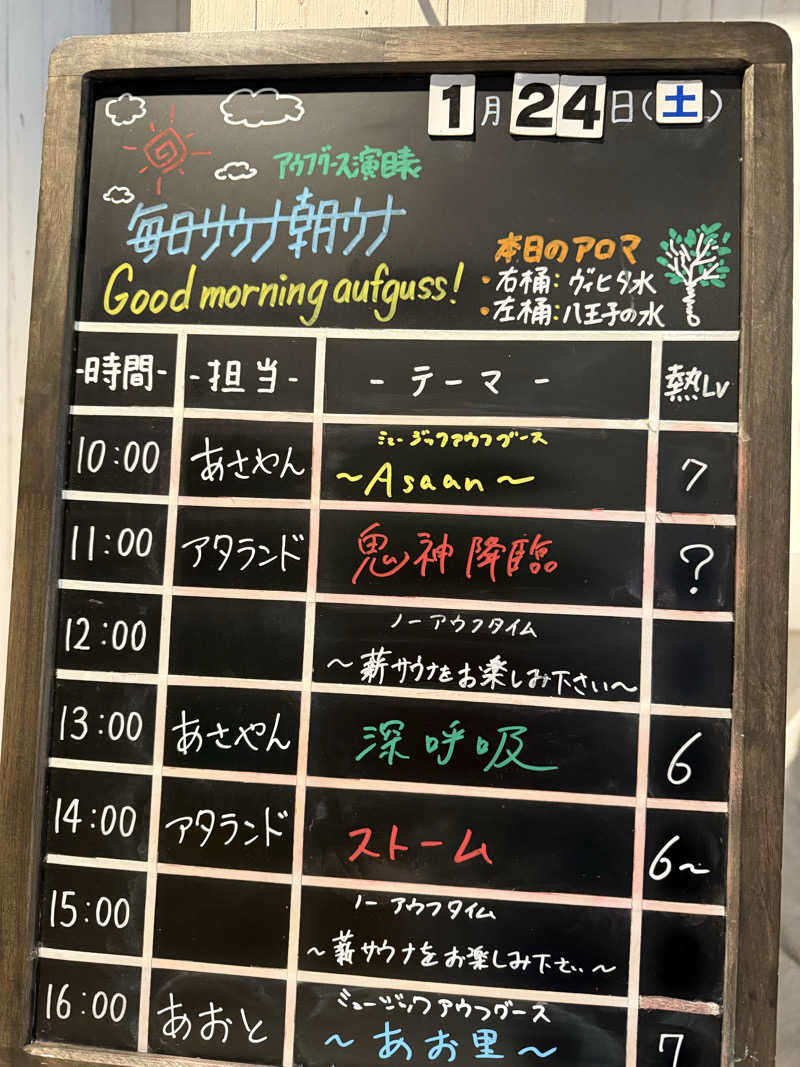 1月24日(土)
アウフグース演目表
毎日サウナ朝ウナ
Good morning aufguss!
本日のアロマ
・右桶：ヴィヒタ水
・左桶：八王子の水
-時間- -担当- -テーマ- 熱Lv
ミュージックアウフグース
10:00 あさやん ～Asaan～ 7
11:00 アタランド 鬼神降臨 ?
ノーアウフタイム
12:00 ～薪サウナをお楽しみ下さい～
13:00 あさやん 深呼吸 6
14:00 アタランド ストーム 6～
ノーアウフタイム
15:00 ～薪サウナをお楽しみ下さい～
ミュージックアウフグース
16:00 あおと ～あお里～ 7